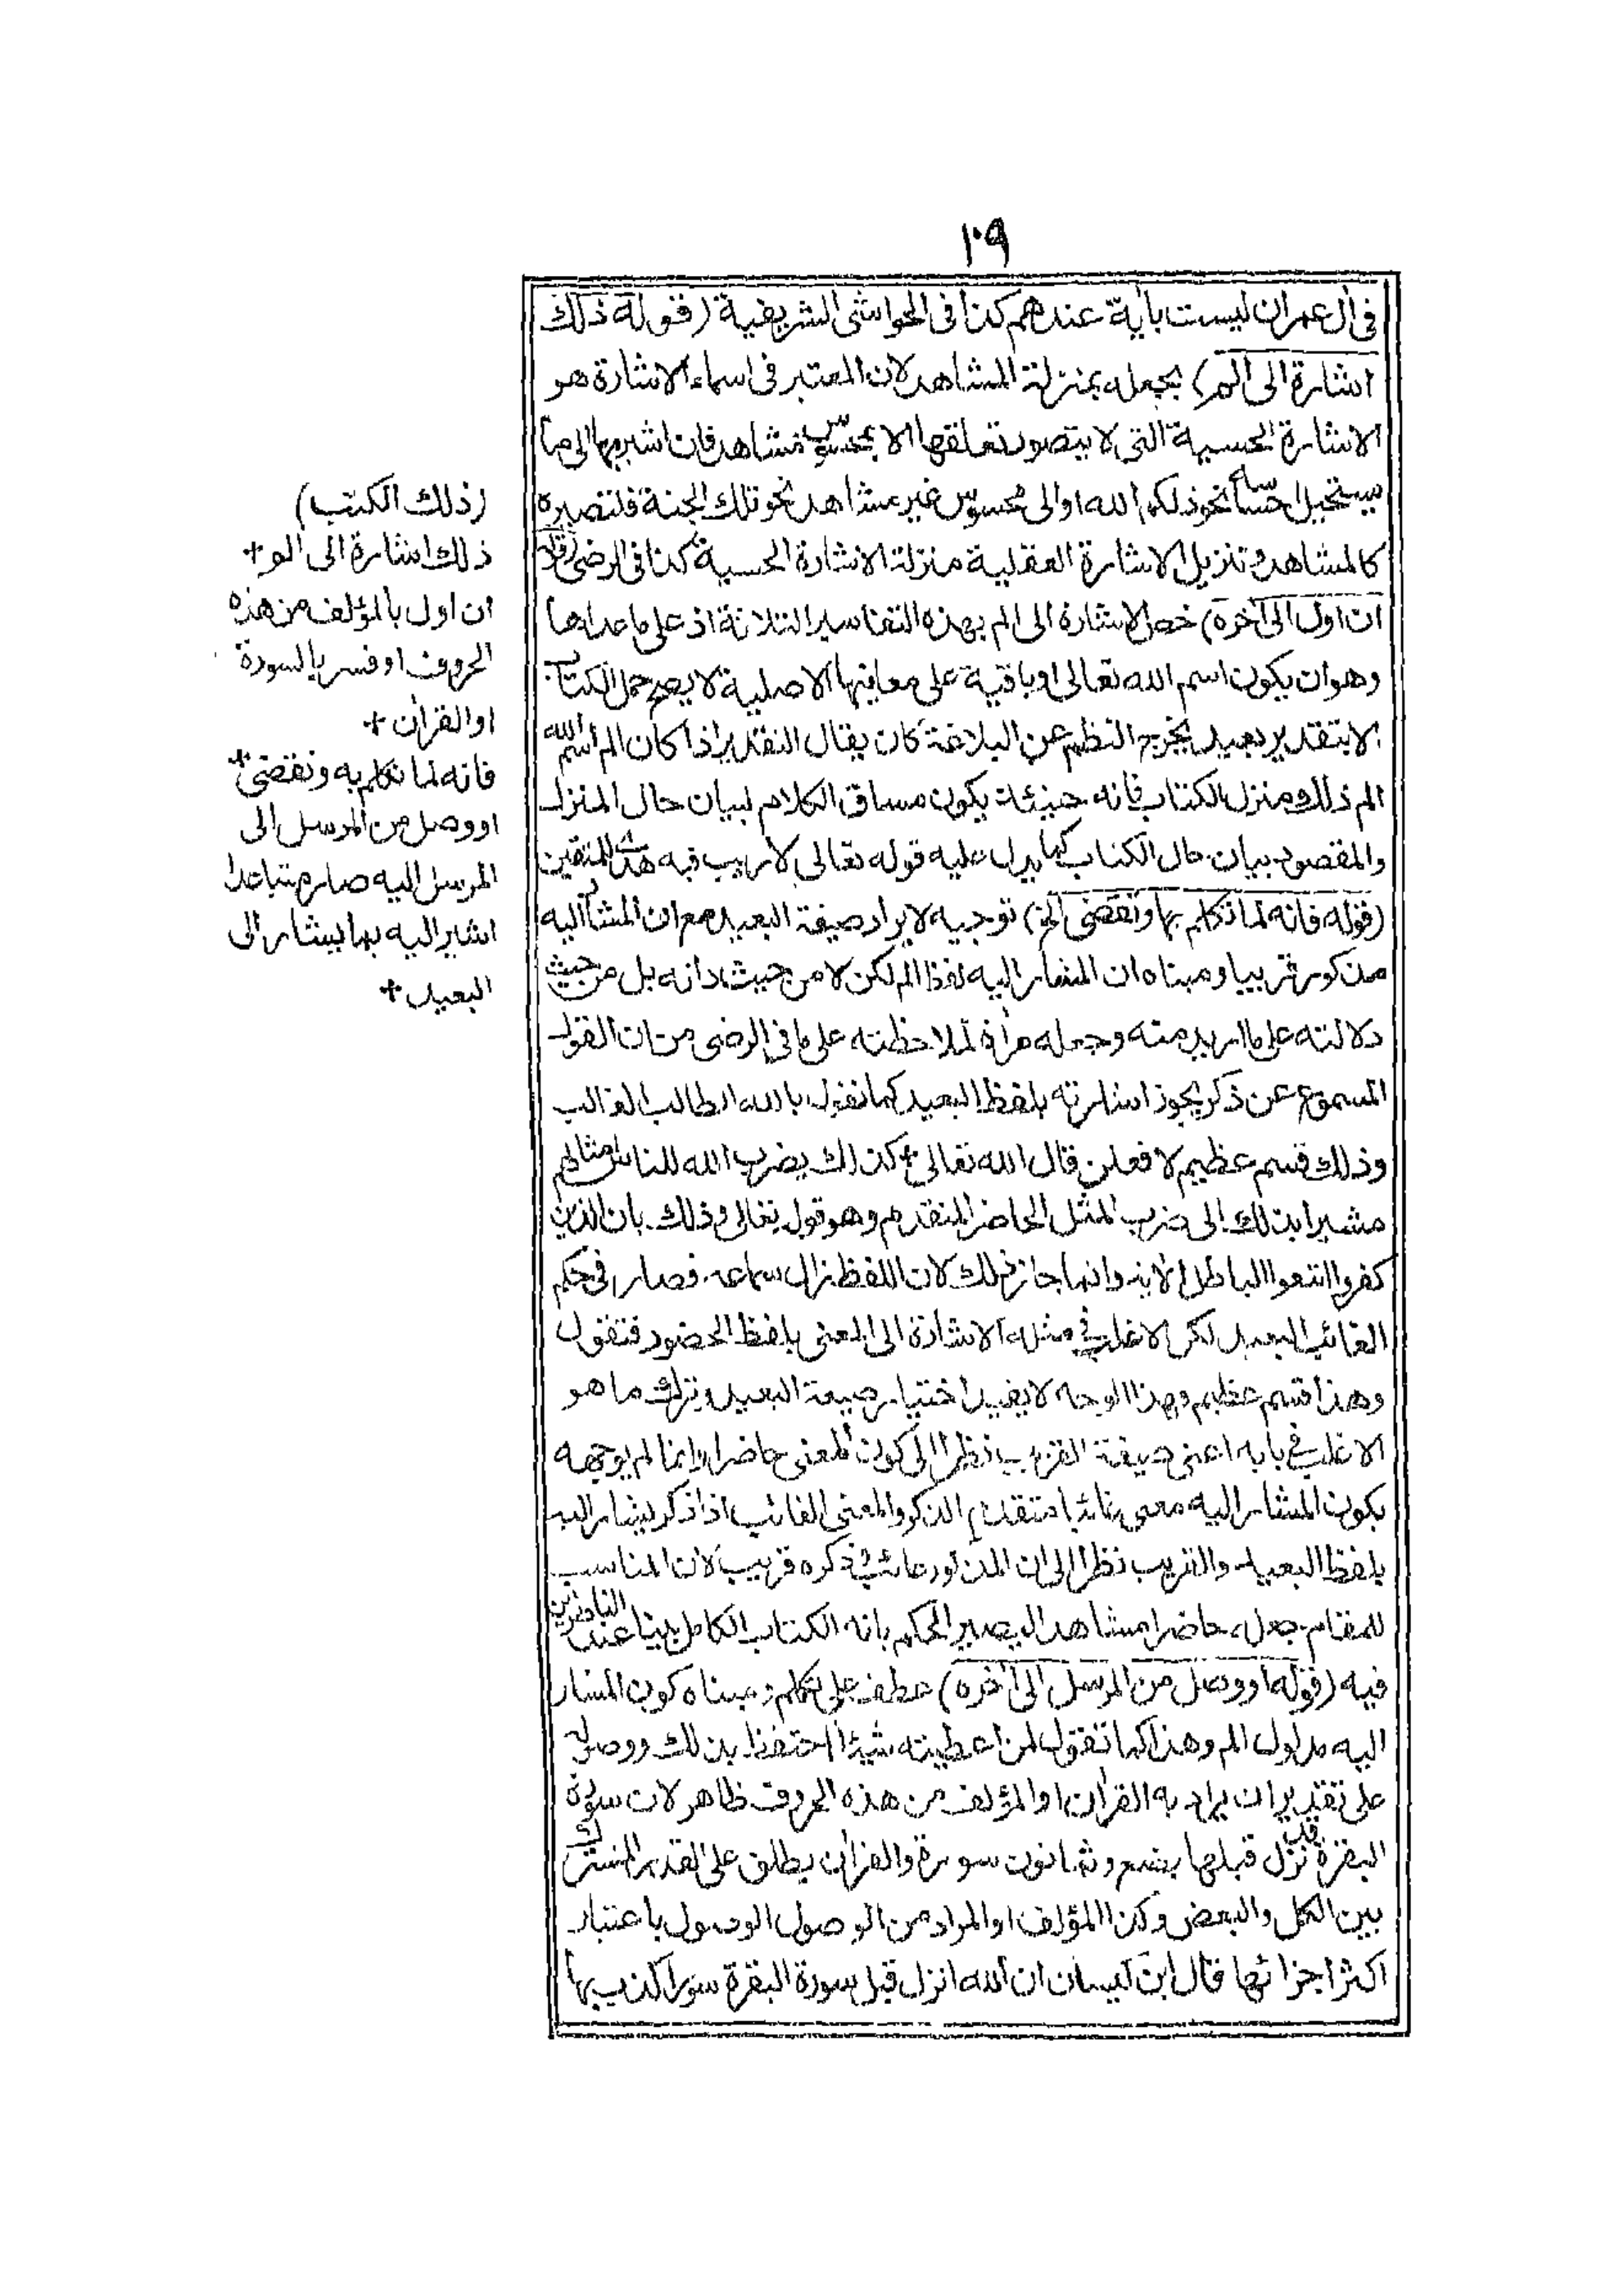 ١٠٩
فى اٰل عمران ليست باٰية عندهم كذا فى الحواشى الشريفية (قوله ذلك
اشارة الى الم) بجعله بمنزلة المشاهد لان المعتبر فى اسماء الاشارة هو
الاشارة الحسية التى لا يتصور تعلقها الا بمحسوس مشاهد فان اشير بها الى ما
يستحيل احساسه نحو ذلكم الله او الى محسوس غير مشاهد نحو تلك الجنة فلتصييره
كالمشاهد وتنزيل الاشارة العقلية منزلة الاشارة الحسية كذا فى الرضى (قوله
ان اول الى اٰخره) خص الاشارة الى الم بهذه التفاسير الثلاثة اذ على ما عداها
وهو ان يكون اسم الله تعالى او باقية على معانيها الاصلية لا يصح حمل الكتاب
الا بتقدير بعيد يخرج النظم عن البلاغة كان يقال التقدير اذا كان الم اسم الله
الم ذلك ومنزل الكتاب فانه حينئذ يكون مساق الكلام لبيان حال المنزل
والمقصود بيان حال الكتاب كما يدل عليه قوله تعالى لا ريب فيه هدى للمتقين
(قوله فانه لما تكلم بها وتقضى الخ) توجيه لايراد صيغة البعيد مع ان المشار اليه
مذكور قريبا ومبناه ان المشار اليه لفظ الم لكن لا من حيث ذاته بل من حيث
دلالته على ما اريد منه وجعله مراٰة لملاحظته على ما فى الرضى من ان القول
المسموع عن ذكر يجوز اشارته بلفظ البعيد كما تقول بالله الطالب الغالب
وذلك قسم عظيم لافعلن قال الله تعالى كذلك يضرب الله للناس امثالهم
مشيرا بذلك الى ضرب المثل الحاضر المتقدم وهو قوله تعالى وذلك بان الذين
كفروا اتبعوا الباطل الاٰية وانما جاز ذلك لان اللفظ زال سماعه فصار فى حكم
الغائب البعيد لكن الاغلب فى مثله الاشارة الى المعنى بلفظ الحضور فتقول
وهذا قسم عظيم وهذا الوجه لا يفيد اختيار صيغة البعيد وترك ما هو
الاغلب فى بابه اعنى صيغة القريب نظرا الى كون المعنى حاضرا وانما لم يوجهه
بكون المشار اليه معنى غائبا متقدم الذكر والمعنى الغائب اذا ذكر يشار اليه
بلفظ البعيد والقريب نظرا الى ان المذكور غائب وذكره قريب لان المناسب
للمقام جعله حاضرا مشاهدا ليصير الحكم بانه الكتاب الكامل بينا عند الناظرين
فيه (قوله او وصل من المرسل الى اٰخره) عطف على تكلم ومبناه كون المشار
اليه مدلول الم وهذا كما تقول لمن اعطيته شيئا احتفظ بذلك ووصوله
على تقدير ان يراد به القراٰن او المؤلف من هذه الحروف ظاهر لان سورة
البقرة قد نزل قبلها بضع وثمانون سورة والقراٰن يطلق على القدر المشترك
بين الكل والبعض وكذا المؤلف او المراد من الوصول الوصول باعتبار
اكثر اجزائها قال ابن كيسان ان الله انزل قبل سورة البقرة سورا كذب بها
(ذلك الكتب)
ذلك اشارة الى الم +
ان اول بالمؤلف من هذه
الحروف او فسر بالسورة
او القراٰن +
فانه لما تكلم به وتقضى +
او وصل من المرسل الى
المرسل اليه صار متباعدا
اشير اليه بما يشار الى
البعيد +